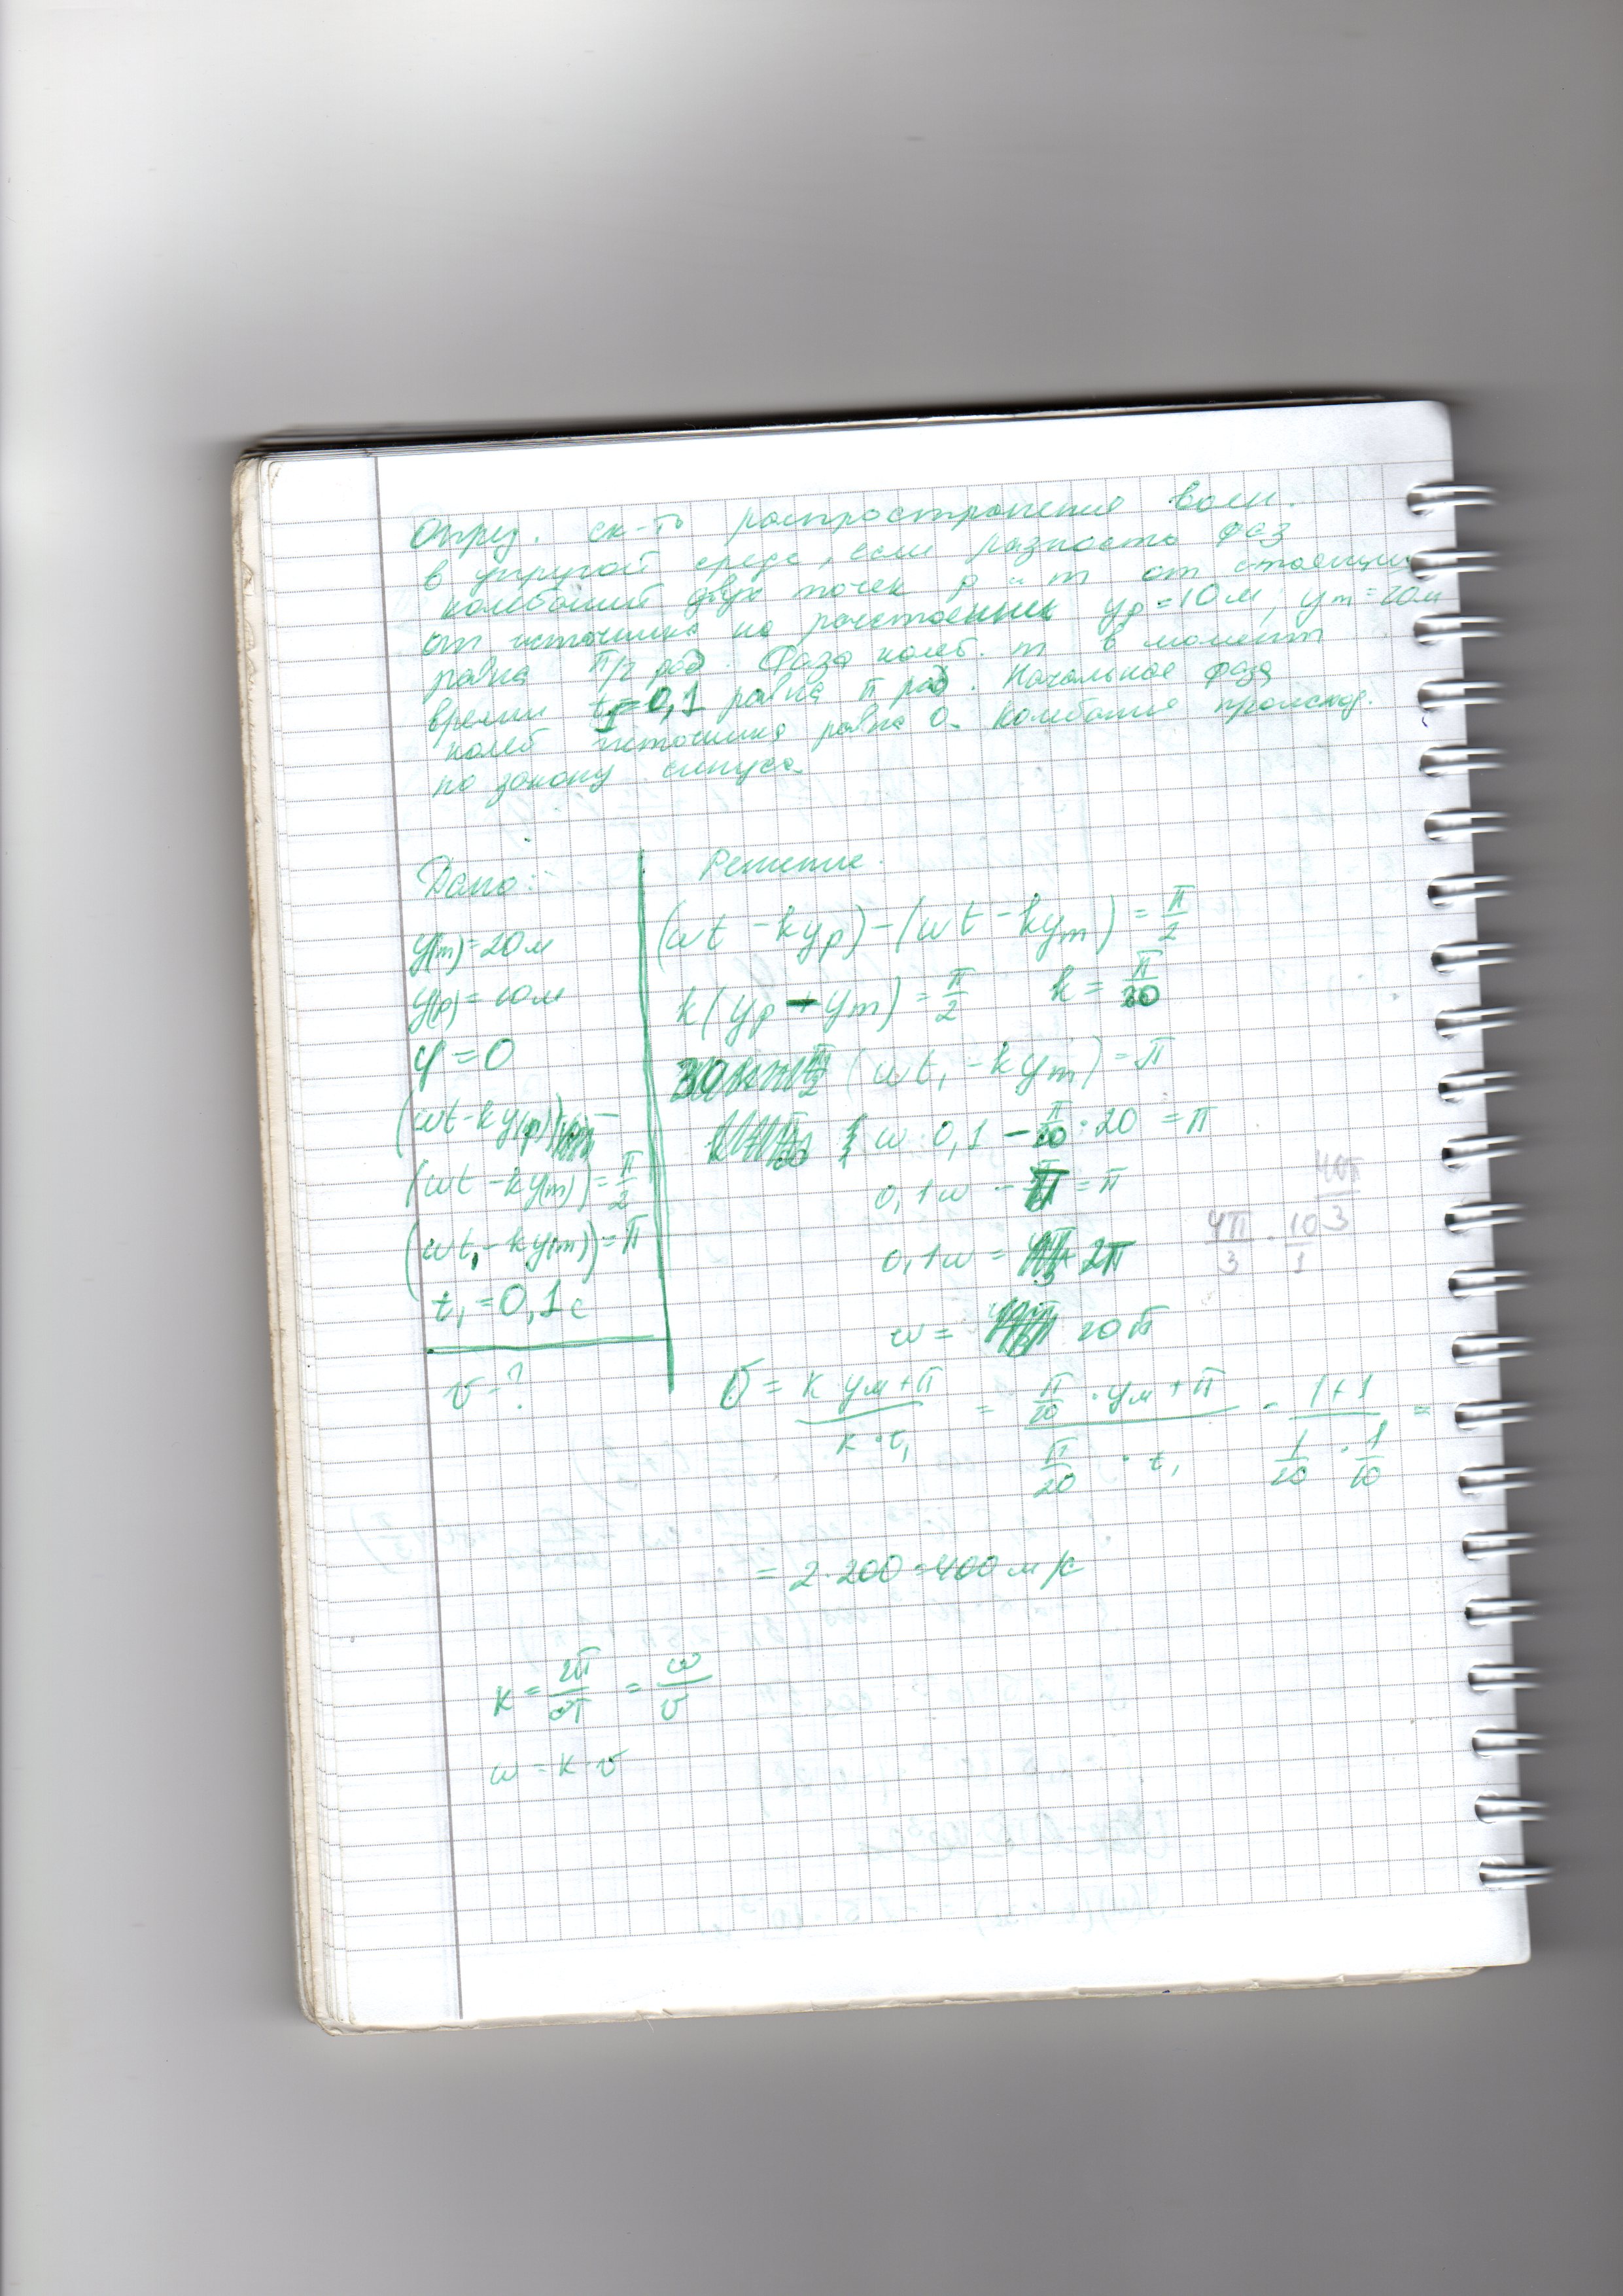 Опред. ск-ть распространения волн.
в упругой среде, если разность фаз
колебаний двух точек p и m от стоящих
от источника на расстоянии yp = 10 м; ym = 20 м
равна π/2 рад. Фаза колеб. m в момент
времени t1 = 0,1 равна π рад. Начальная фаза
колеб источника равна 0. Колебания происход.
по закону синуса.
Дано:
y(m) = 20 м
y(p) = 10 м
φ = 0
(ωt - ky(p)) -
(ωt - ky(m)) = π/2
(ωt1 - ky(m)) = π
t1 = 0,1 с
υ - ?
Решение.
(ωt - kyp) - (ωt - kym) = π/2
k(yp - ym) = π/2 k = π/20
(ωt1 - kym) = π
ω · 0,1 - π/20 · 20 = π
0,1ω - π = π
0,1ω = 2π
ω = 20π
4π/3 · 10/1
υ = (k · yм + π)/(k · t1) = (π/20 · yм + π)/(π/20 · t1) = (1 + 1)/(1/20 · 1/10) =
= 2 · 200 = 400 м/с
k = 2π/υT = ω/υ
ω = k · υ